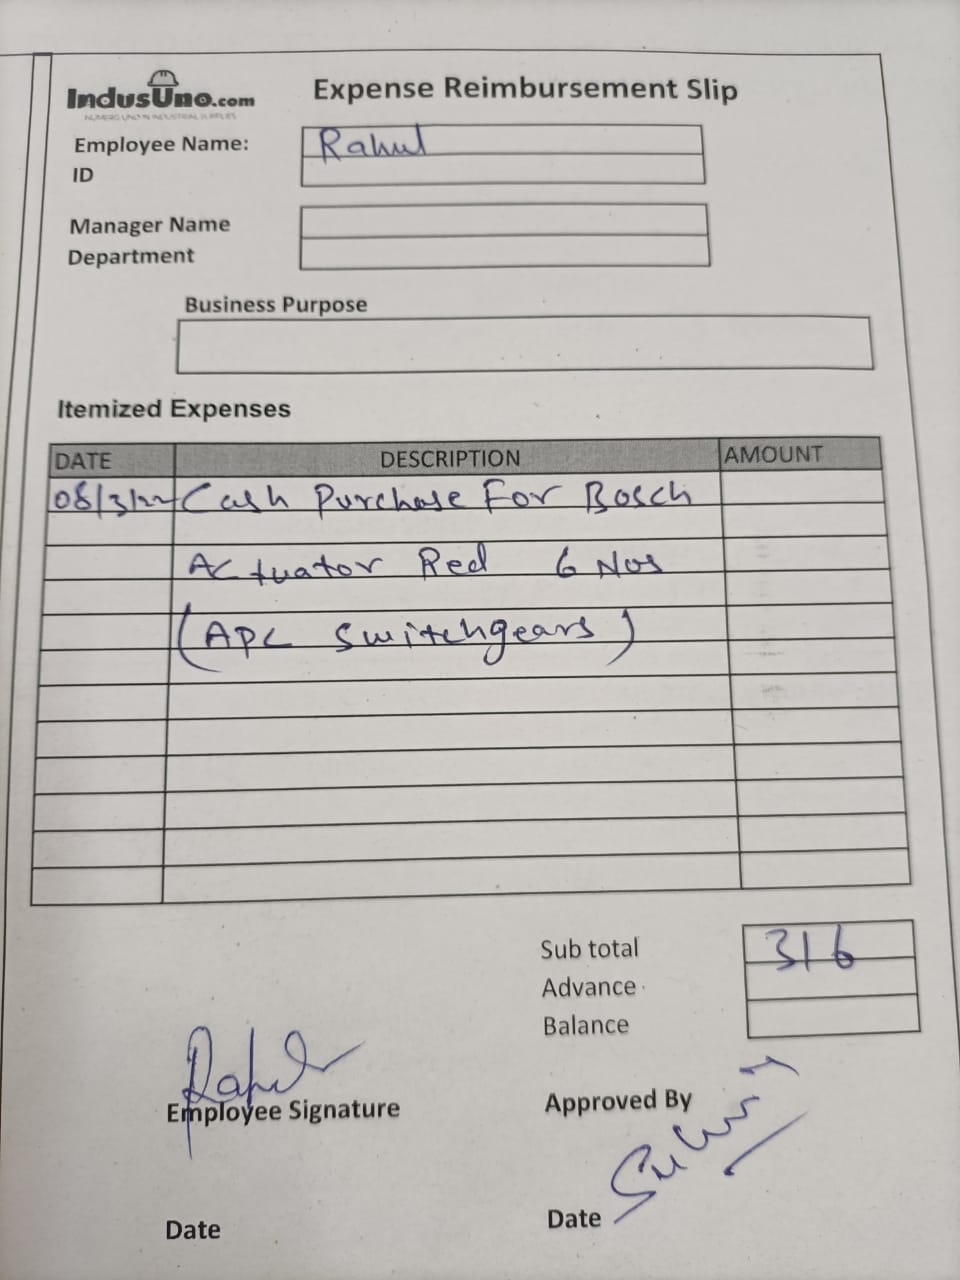 IndusUno.com
NUMERO UNO IN INDUSTRIAL SUPPLIES
Expense Reimbursement Slip
Employee Name: Rahul
ID
Manager Name
Department
Business Purpose
Itemized Expenses
DATE DESCRIPTION AMOUNT
08/3/22 Cash Purchase For Bosch
Actuator Red 6 Nos
(APL Switchgears)
Sub total 316
Advance
Balance
Rahul
Employee Signature
Approved By
Date
Date